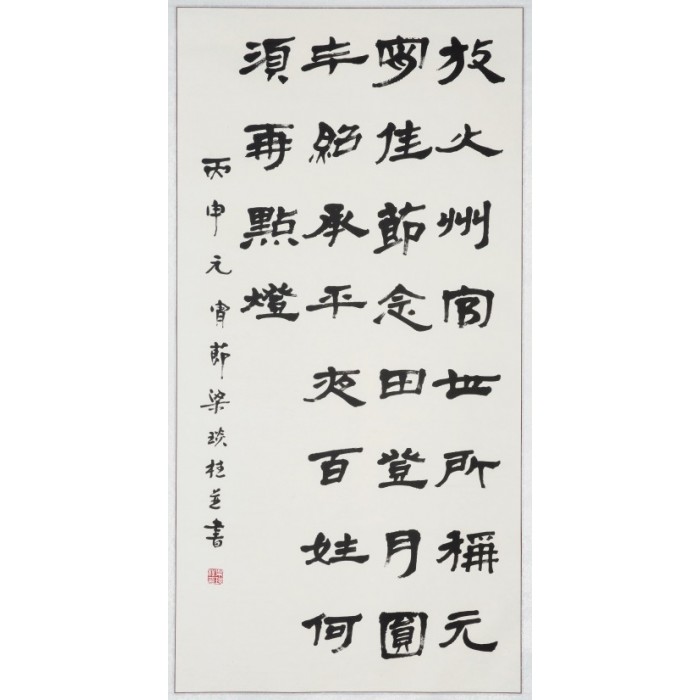 放火州官世所稱元
宵佳節念田登月圓
年紹承平夜百姓何
須再點燈
丙申元宵節梁琰桂並書